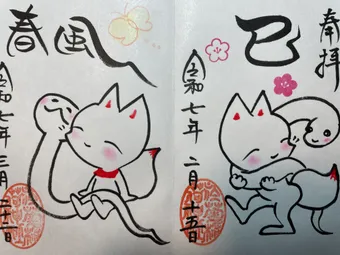 奉拝
巳
令和七年 二月 十一日
春風
令和七年 三月 二十一日